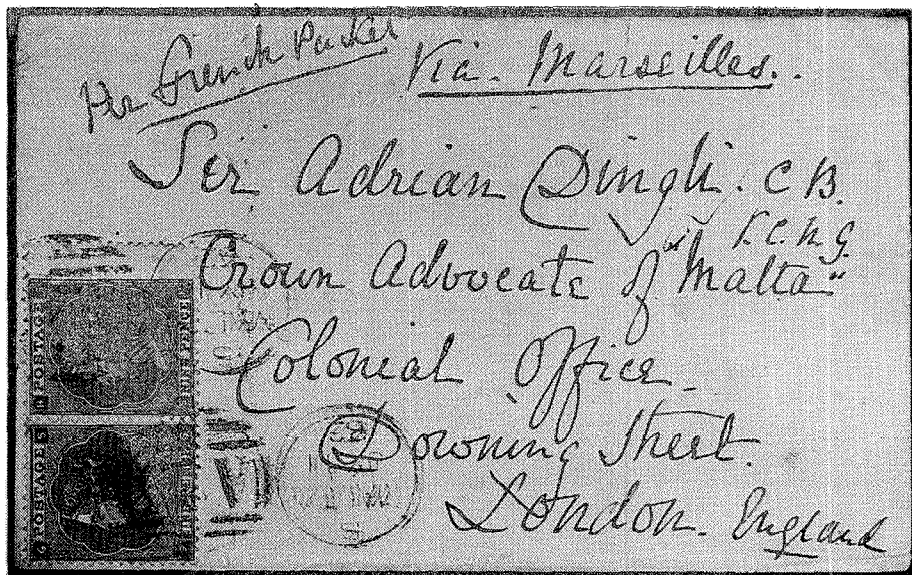 Per French Packet
Via. Marseilles.
Sir Adrian Dingli. C B.
K.C.M.G.
Crown Advocate of "Malta"
Colonial Office
Downing Street.
London. England
POSTAGE
NINE PENCE
POSTAGE